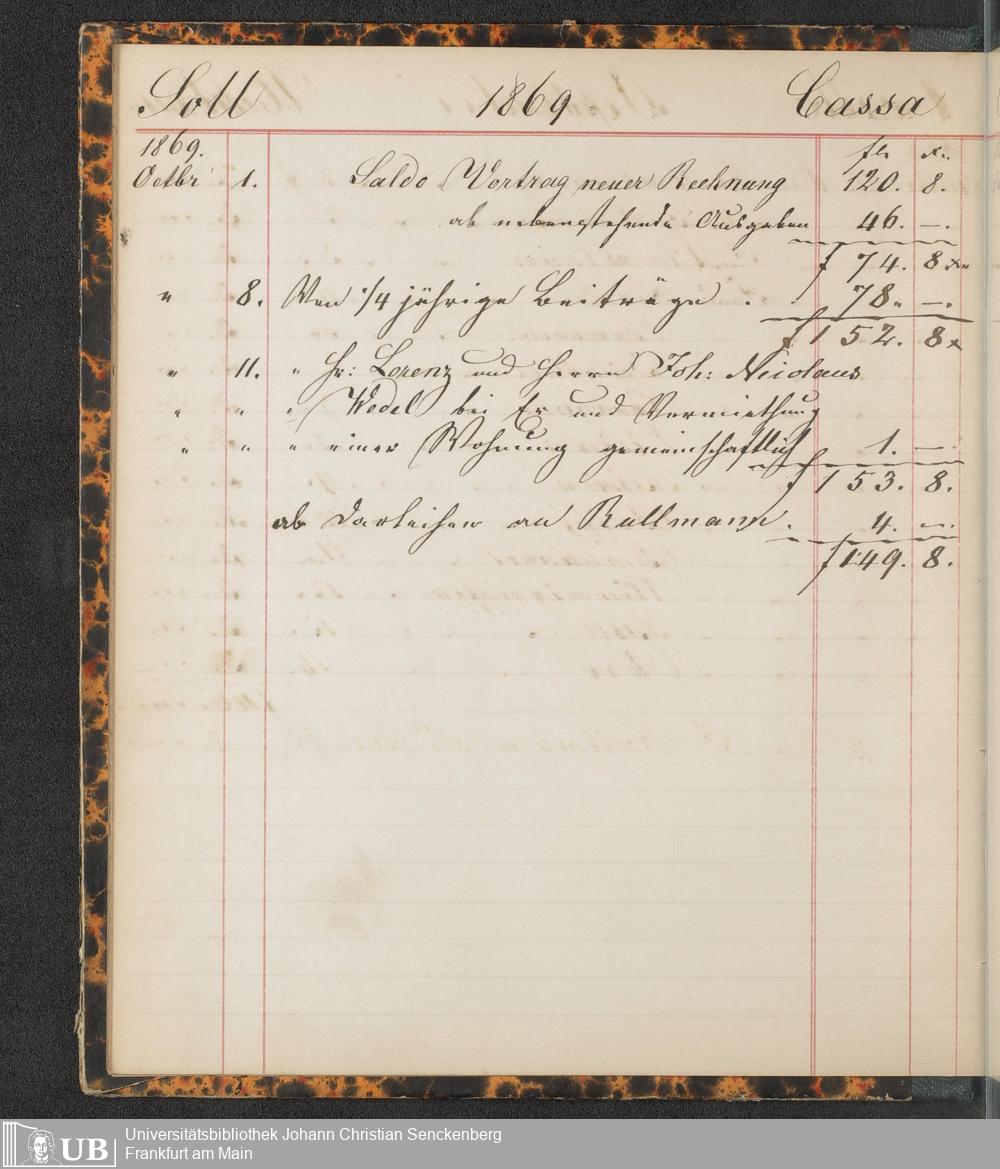 Soll 1869 Cassa
1869. fl. x.
Octbr 1. Saldo Vortrag neuer Rechnung 120. 8.
ab nebenstehende Ausgaben 46. —.
f 74. 8 x
" 8. Von 1/4 jährige Beiträge . . 78. —.
f 152. 8 x
" 11. " Hr: Lorenz und Herrn Joh: Nicolaus
" " " Wedel bei Er und Vermiethung
" " " einer Wohnung gemeinschaftlich 1. —.
f 153. 8.
ab Darleihen an Rullmann. 4. —.
f 149. 8.
UB
Universitätsbibliothek Johann Christian Senckenberg
Frankfurt am Main